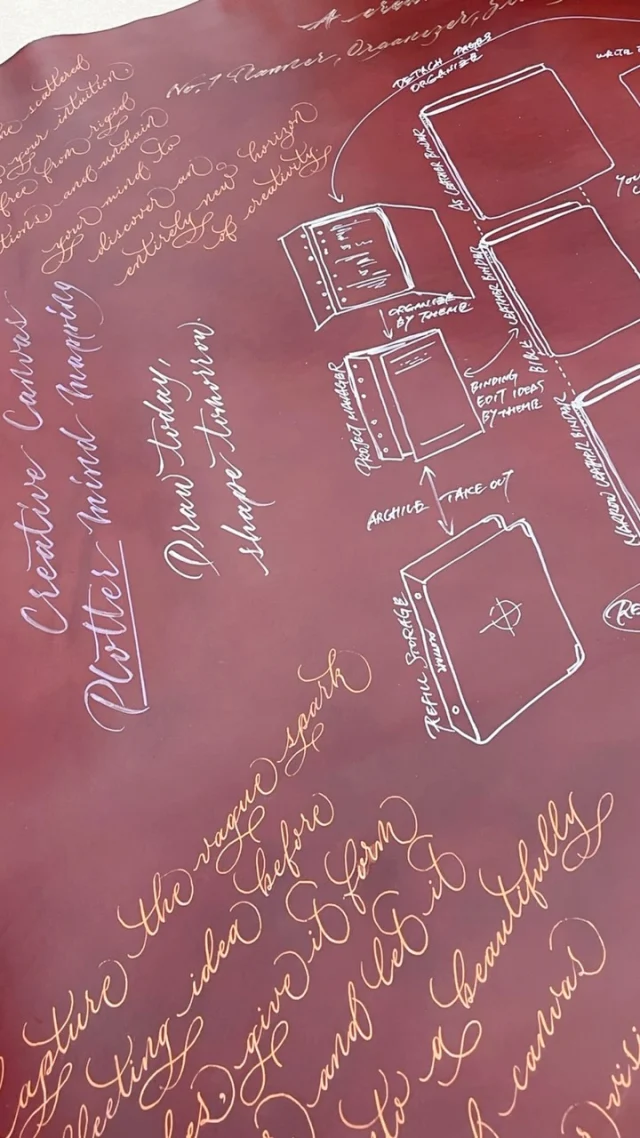 No. 1 Planner, Organizer,
scattered
your intuition
free from rigid
and unchain
your mind to
discover an
entirely new horizon
of creativity
DETACH PAGES
ORGANIZE
A5 LEATHER BINDER
ORGANIZE
BY THEME
LEATHER BINDER
BIBLE
PROJECT MANAGER
BINDING
EDIT IDEAS
BY THEME
NARROW LEATHER BINDER
ARCHIVE
TAKE-OUT
REFILL STORAGE
Creative Canvas
Plotter mind mapping
Draw today,
shape tomorrow.
capture the vague spark
fleeting idea before
give it form
and let it
to a beautifully
canvas